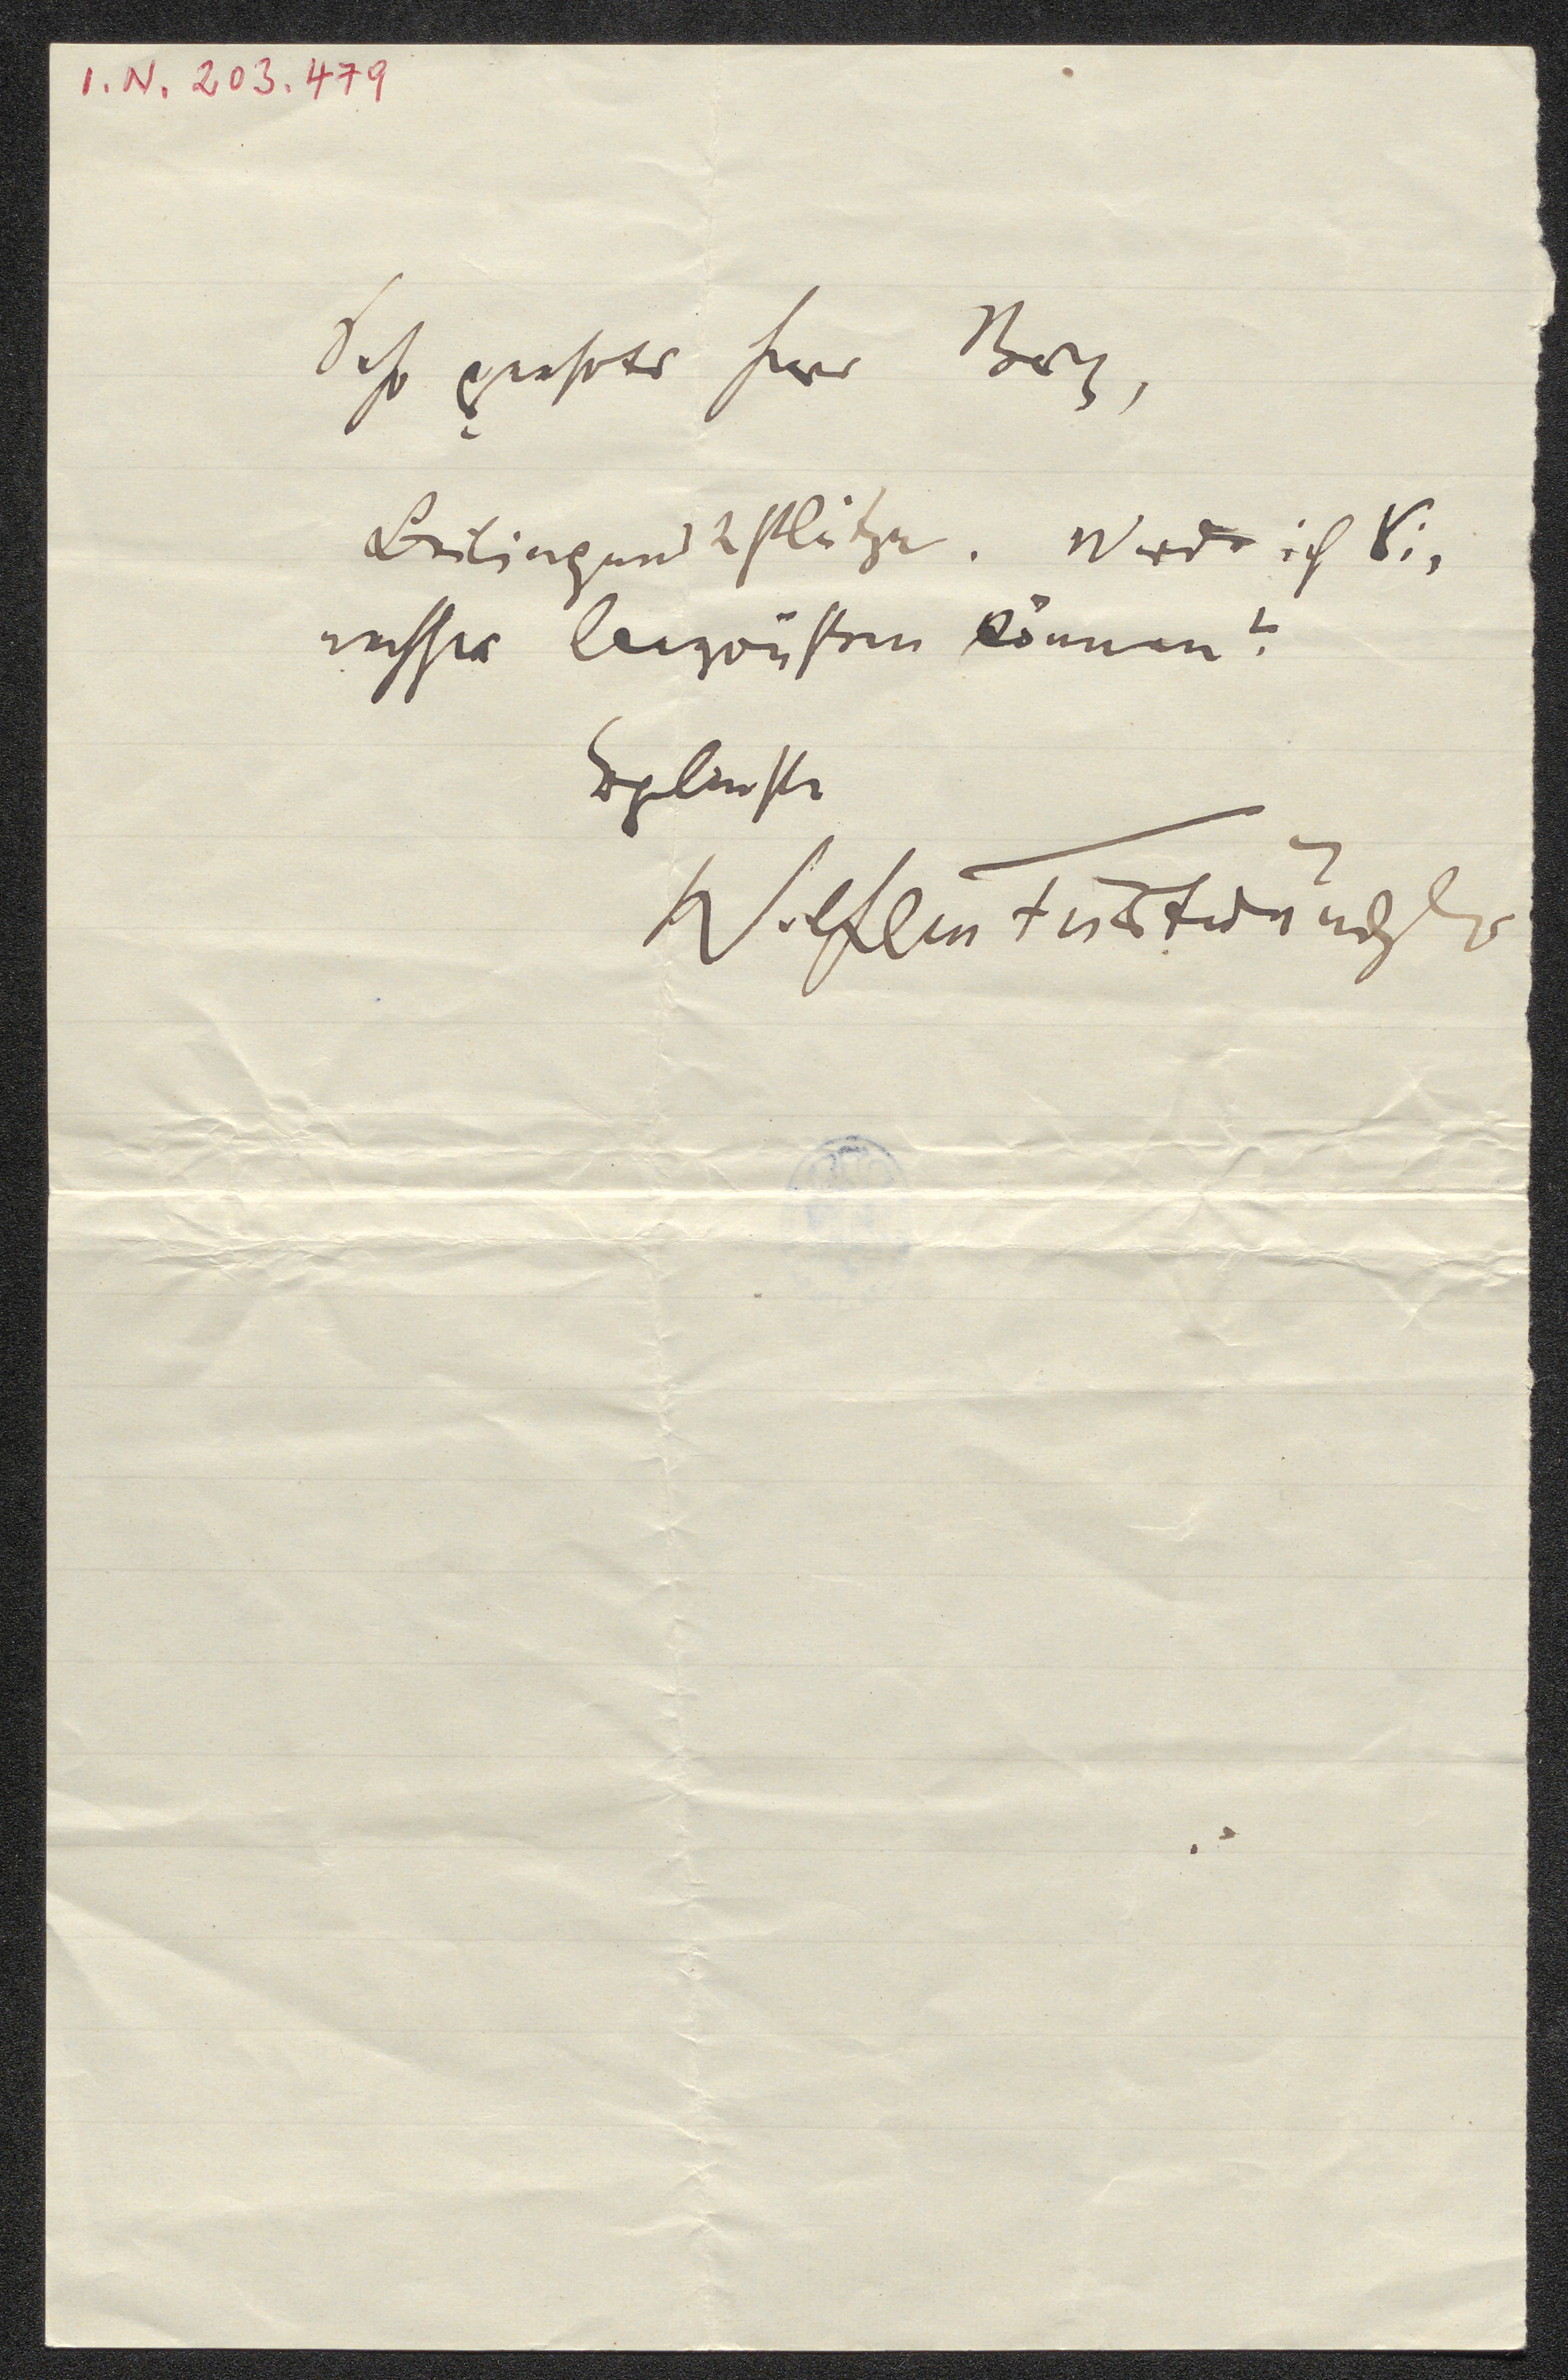 I.N. 203.479
Sehr geehrter Herr Berg,
2 Plätze. Werde ich Sie
nachher begrüßen können?
Ergebenster
Wilhelm Furtwängler